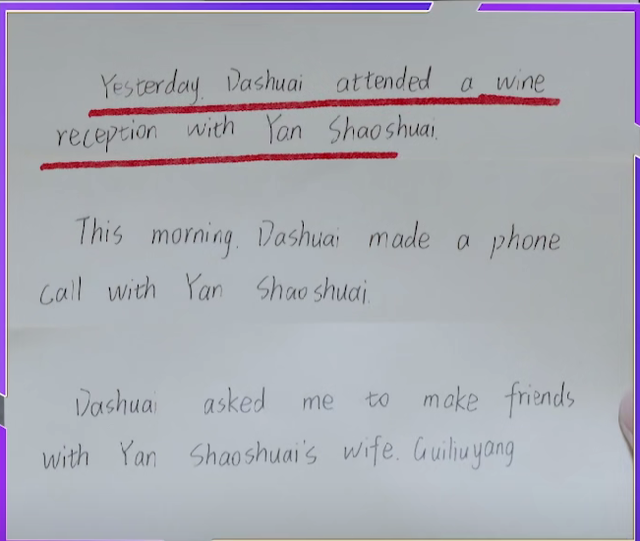 Yesterday, Dashuai attended a wine
reception with Yan Shaoshuai.
This morning, Dashuai made a phone
call with Yan Shaoshuai.
Dashuai asked me to make friends
with Yan Shaoshuai's wife. Guiliuyang